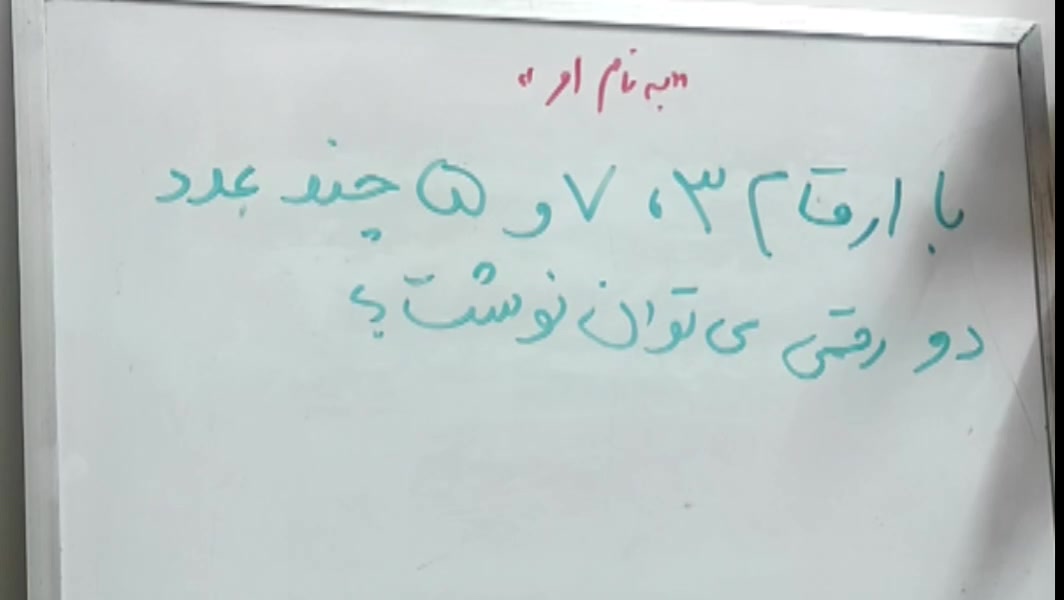 "به نام او"
با ارقام ۳، ۷ و ۵ چند عدد
دو رقمی می توان نوشت؟